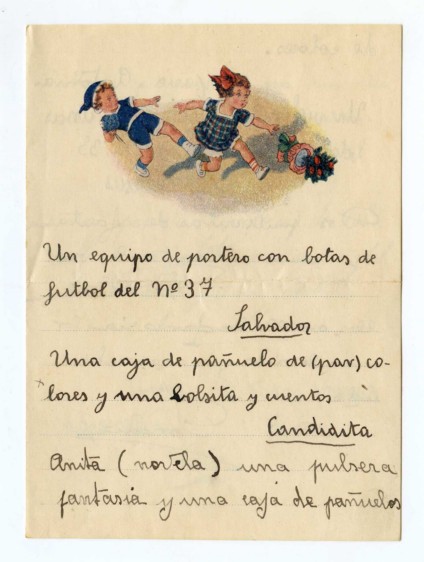 Un equipo de portero con botas de
futbol del Nº 37
Salvador
Una caja de pañuelo de (par) co-
lores y una bolsita y cuentos
Candidita
Anita (novela) una pulsera
fantasia y una caja de pañuelos